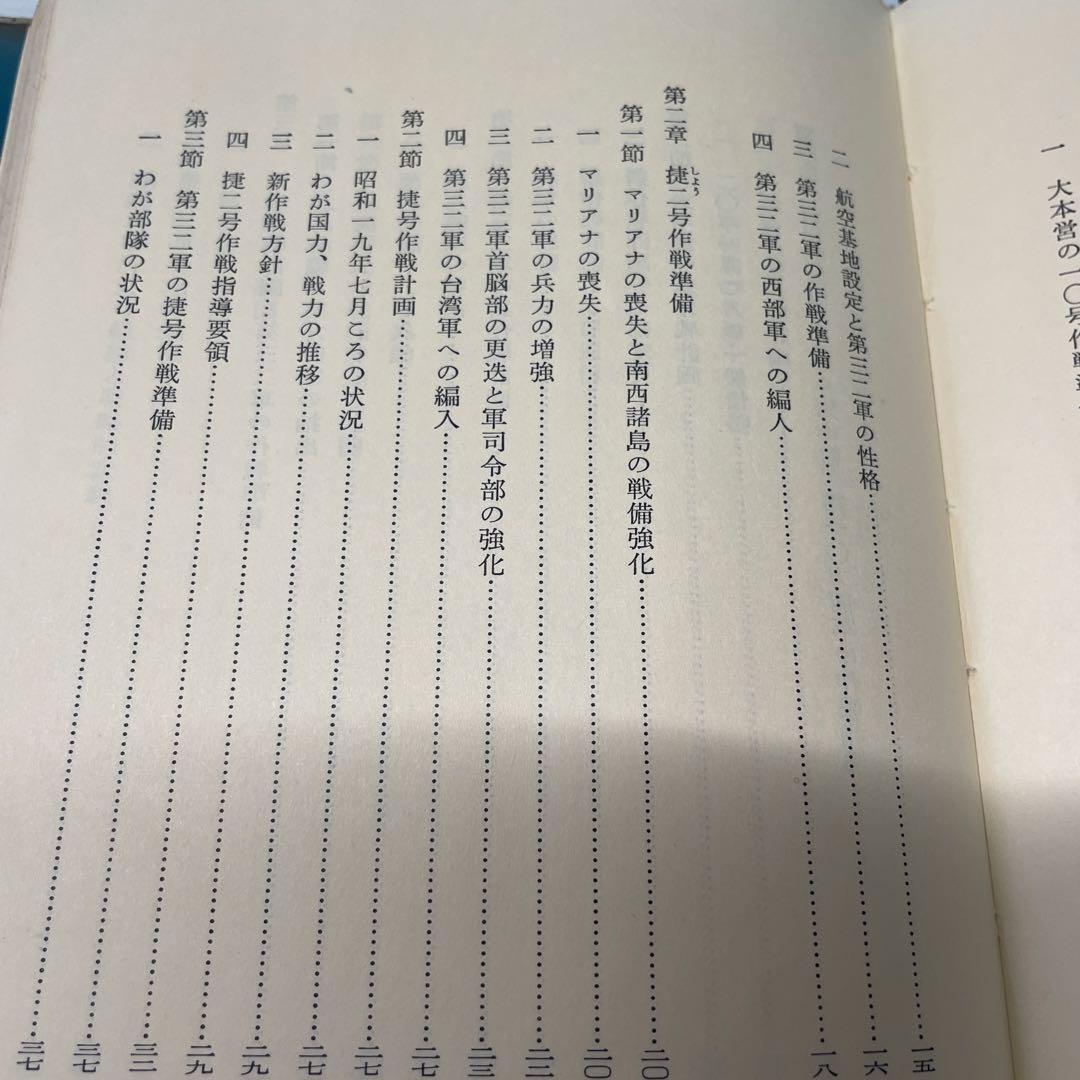 一 大本営の一〇号作戦
二 航空基地設定と第三二軍の性格……一五
三 第三二軍の作戦準備……一六
四 第三二軍の西部軍への編人……一八
第二章 捷二号作戦準備
しよう
第一節 マリアナの喪失と南西諸島の戦備強化……二〇
一 マリアナの喪失……二〇
二 第三二軍の兵力の増強……二二
三 第三二軍首脳部の更迭と軍司令部の強化……二三
四 第三二軍の台湾軍への編入……二七
第二節 捷号作戦計画……二七
一 昭和一九年七月ころの状況……二七
二 わが国力、戦力の推移……二九
三 新作戦方針……二九
四 捷二号作戦指導要領……三二
第三節 第三二軍の捷号作戦準備……三七
一 わが部隊の状況……三七